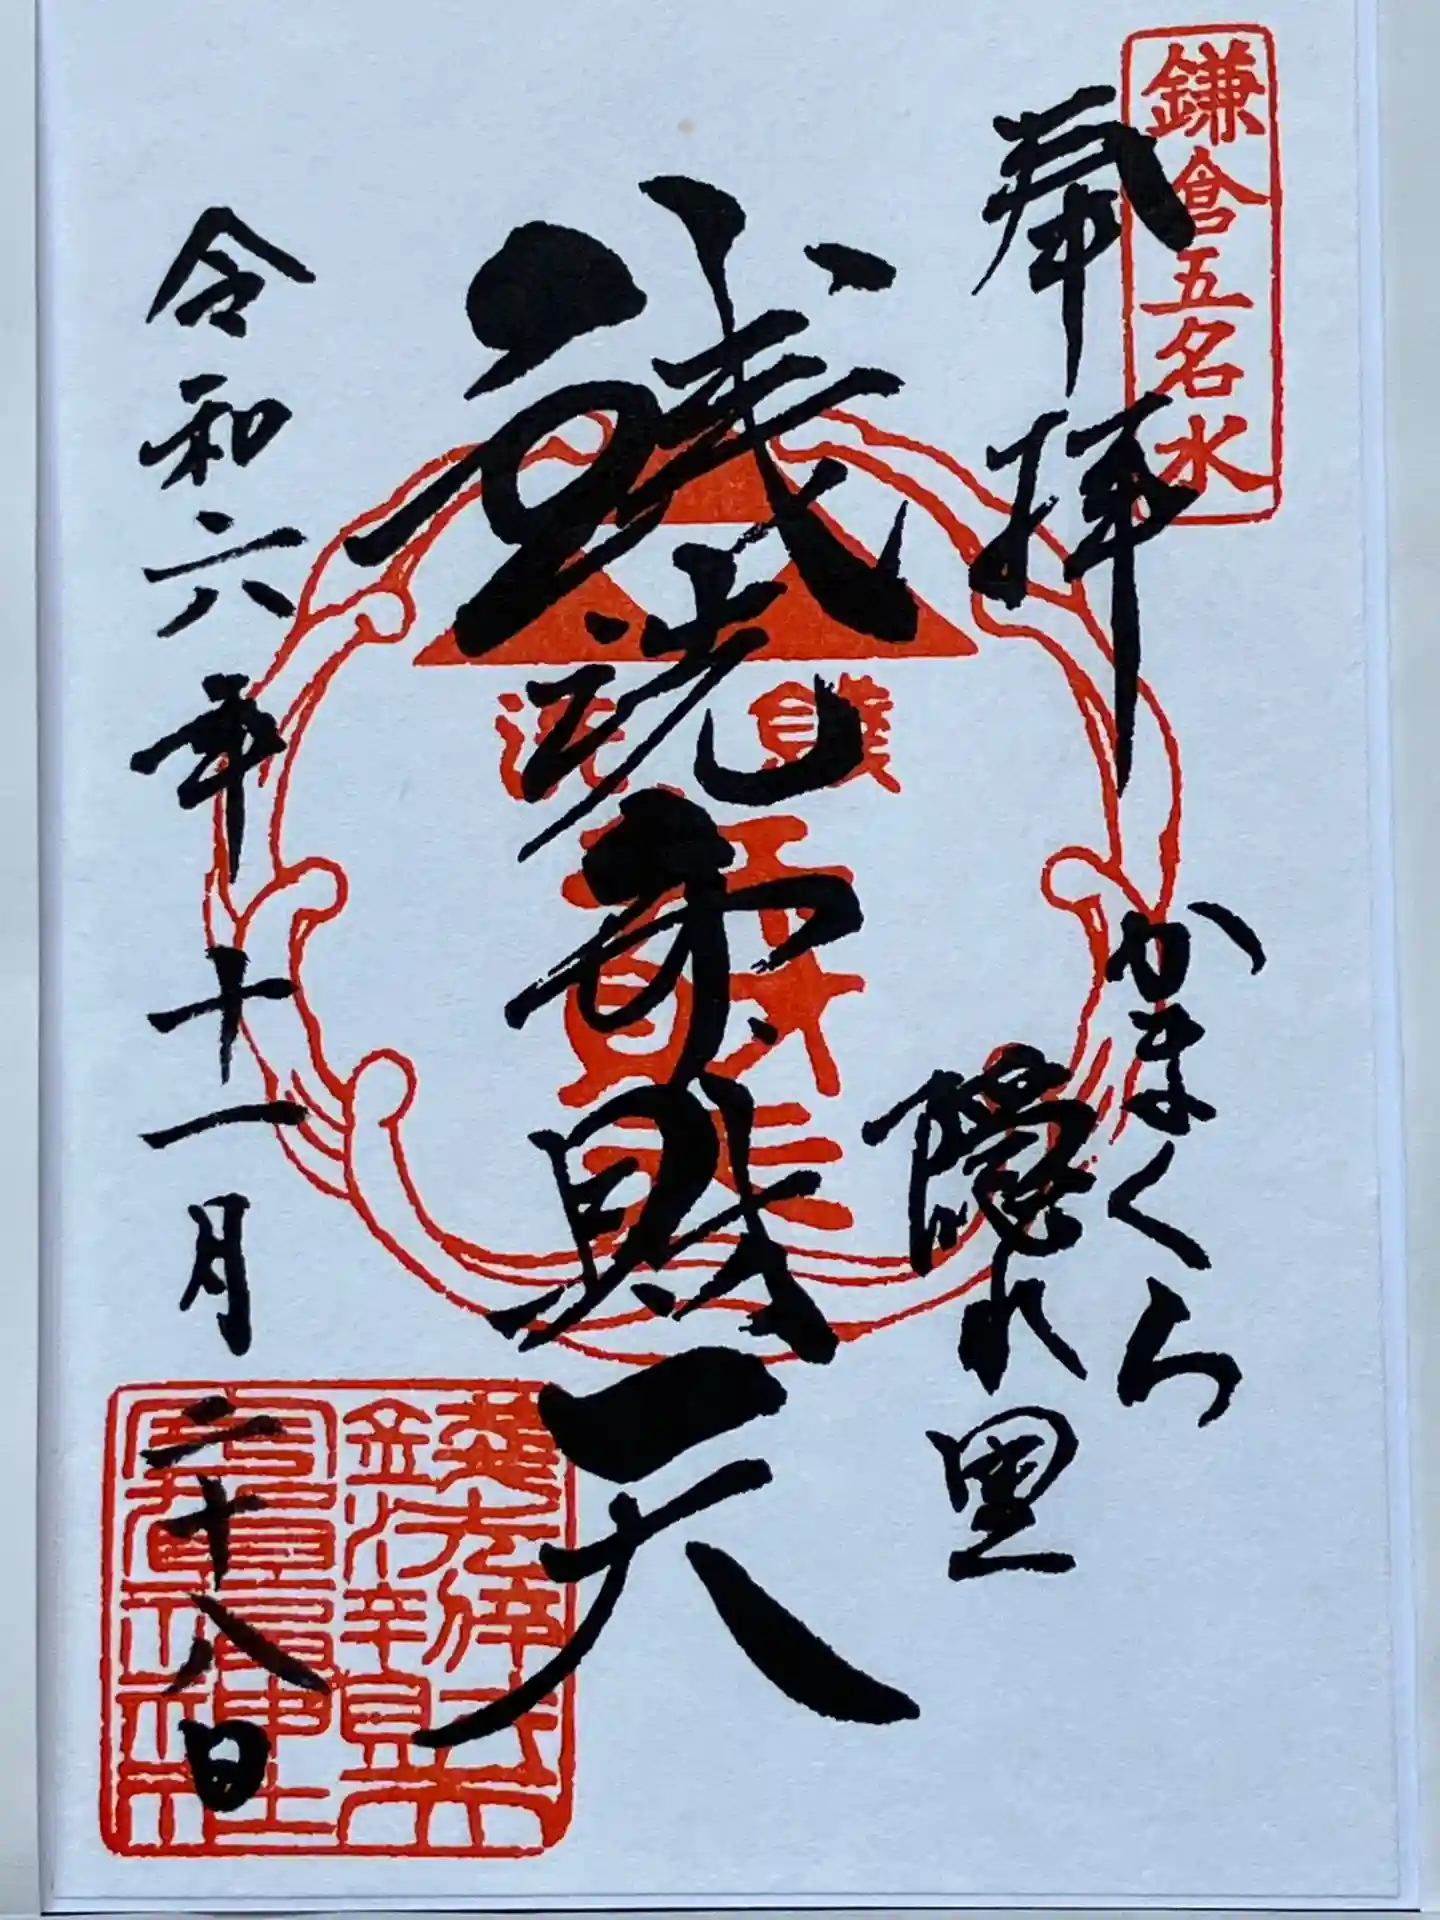 鎌倉五名水
奉拝
かまくら
隠れ里
銭洗弁財天
錢洗
令和六年十一月二十八日
錢洗辨財天